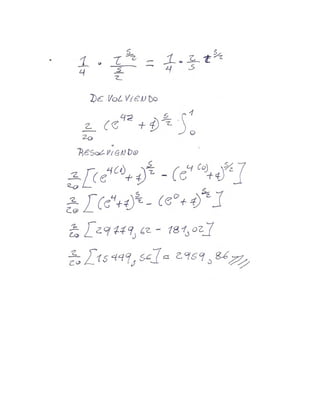 1/4 · t^5/2 / 5/2 = 1/4 · 2/5 t^5/2
DEVOLVIENDO
2/20 (e^4z + 4)^5/2 ∫ 1 0
RESOLVIENDO
2/20 [(e^4(1) + 4)^5/2 - (e^4(0) + 4)^5/2]
2/20 [(e^4 + 4)^5/2 - (e^0 + 4)^5/2]
2/20 [29779,62 - 181,02]
2/20 [15449,56] = 2959,86